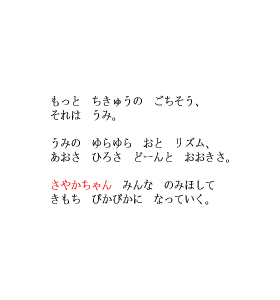 もっと　ちきゅうの　ごちそう、
それは　うみ。
うみの　ゆらゆら　おと　リズム、
あおさ　ひろさ　どーんと　おおきさ。
さやかちゃん　みんな　のみほして
きもち　ぴかぴかに　なっていく。